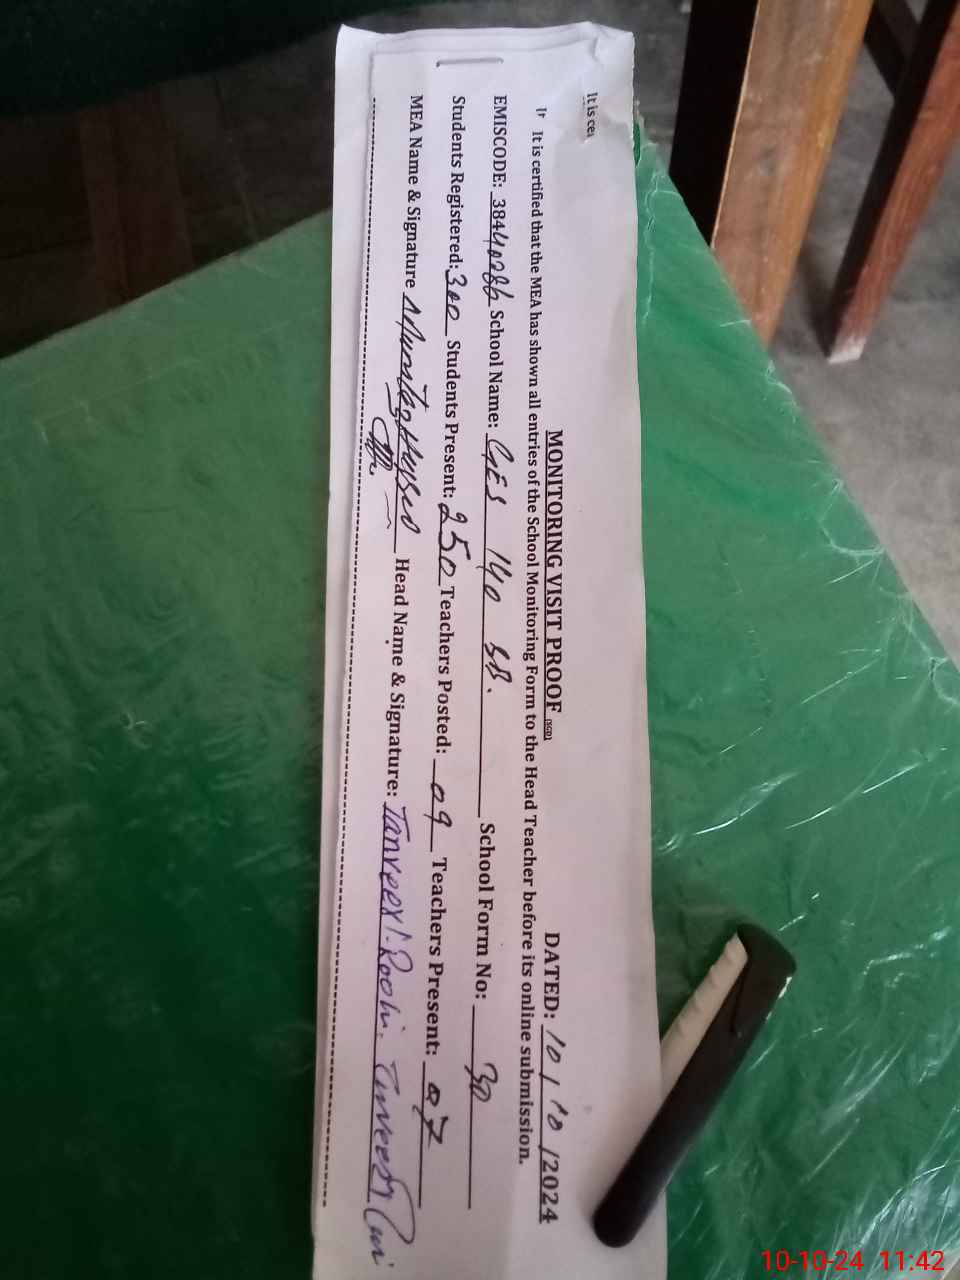 It is cer
MONITORING VISIT PROOF (SGD) DATED: 10 / 10 /2024
It is certified that the MEA has shown all entries of the School Monitoring Form to the Head Teacher before its online submission.
EMISCODE: 38440286 School Name: GES 140 SB. School Form No: 30
Students Registered: 300 Students Present: 250 Teachers Posted: 09 Teachers Present: 07
MEA Name & Signature Head Name & Signature: Tanveer
10-10-24 11:42